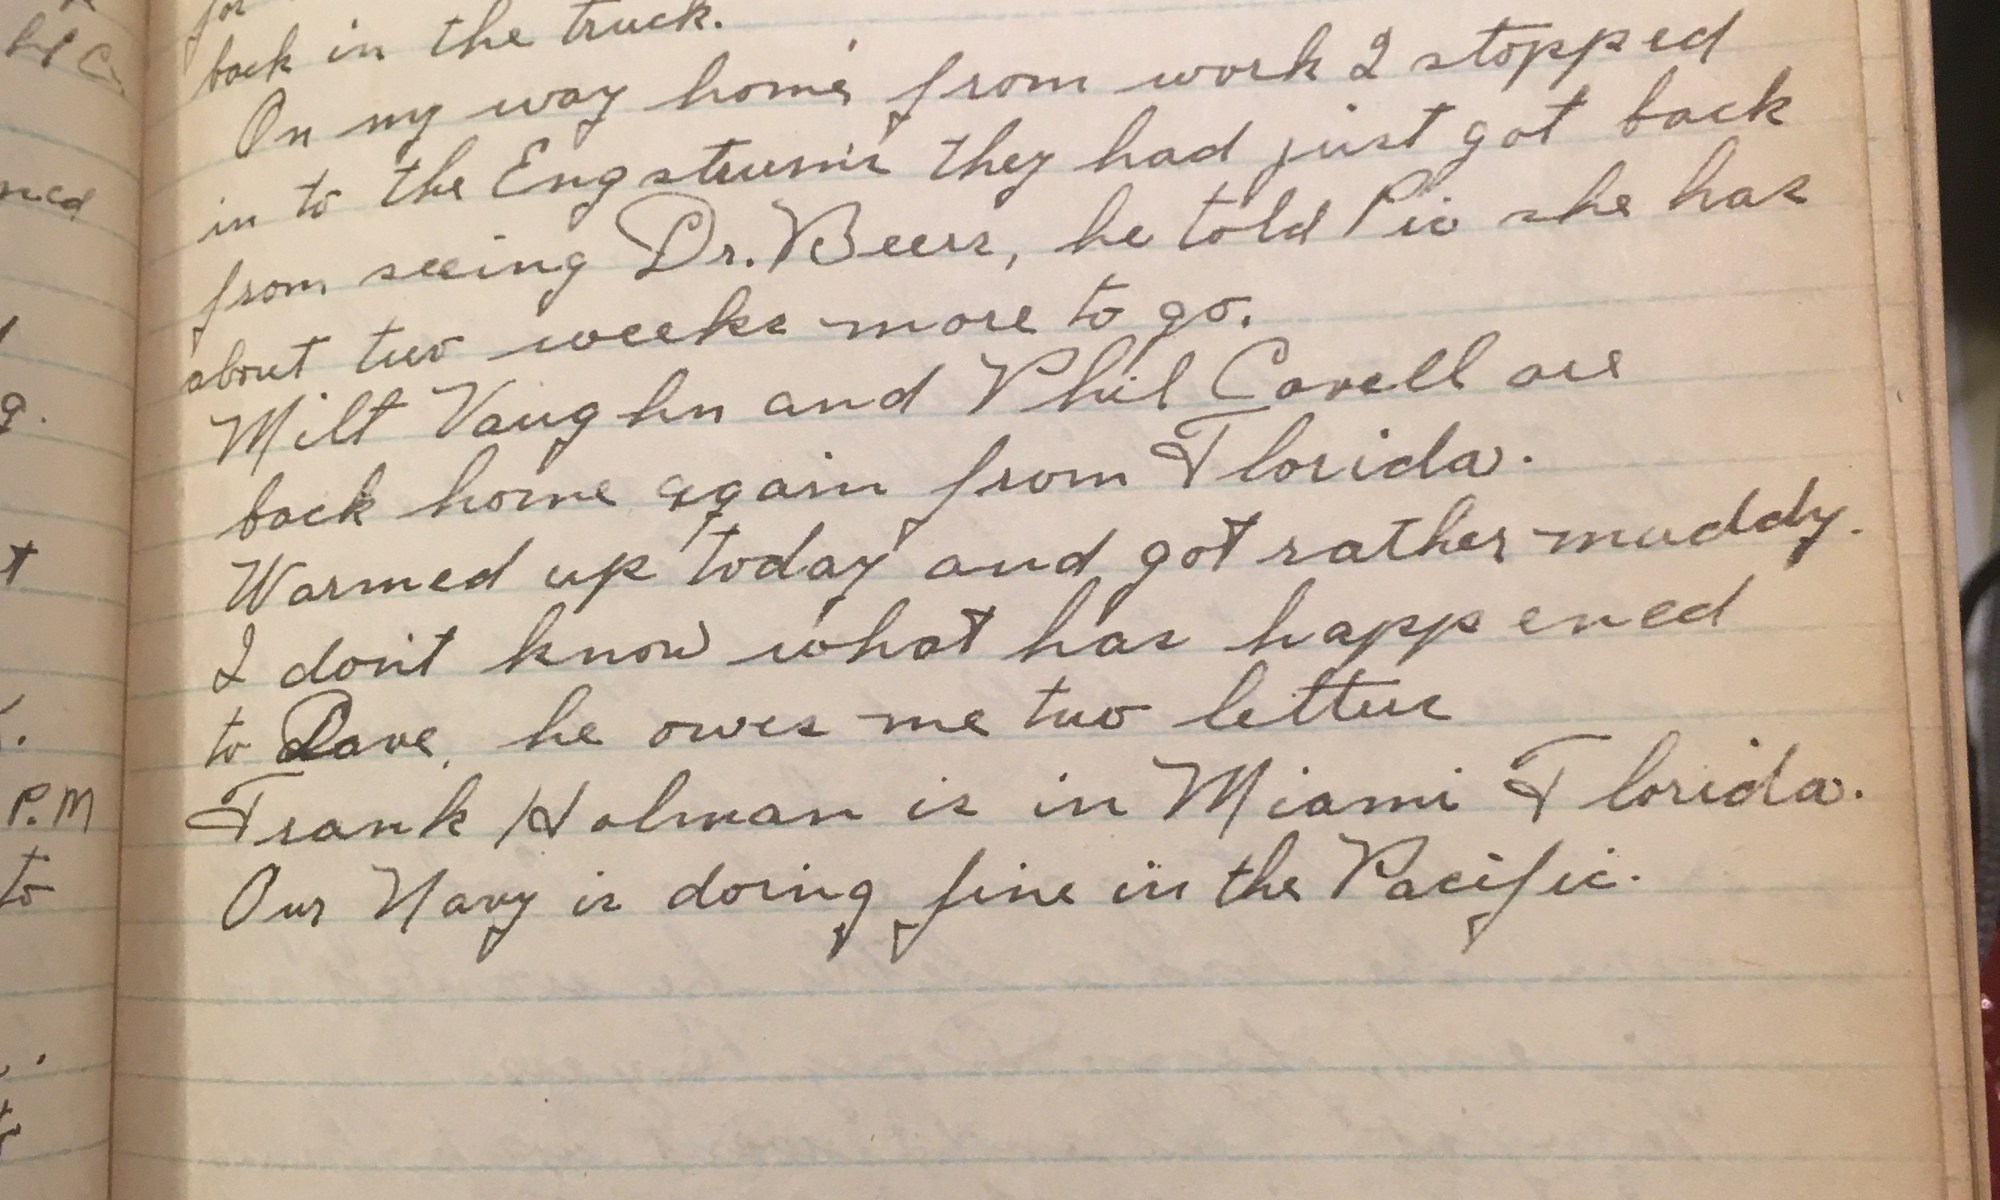 for
back in the truck.
On my way home from work I stopped
in to the Engstrums they had just got back
from seeing Dr. Beers, he told Pic she has
about two weeks more to go.
Milt Vaughn and Phil Covell are
back home again from Florida.
Warmed up today and got rather muddy.
I don't know what has happened
to Dave, he owes me two letters
Frank Holman is in Miami Florida.
Our Navy is doing fine in the Pacific.
P.M
to